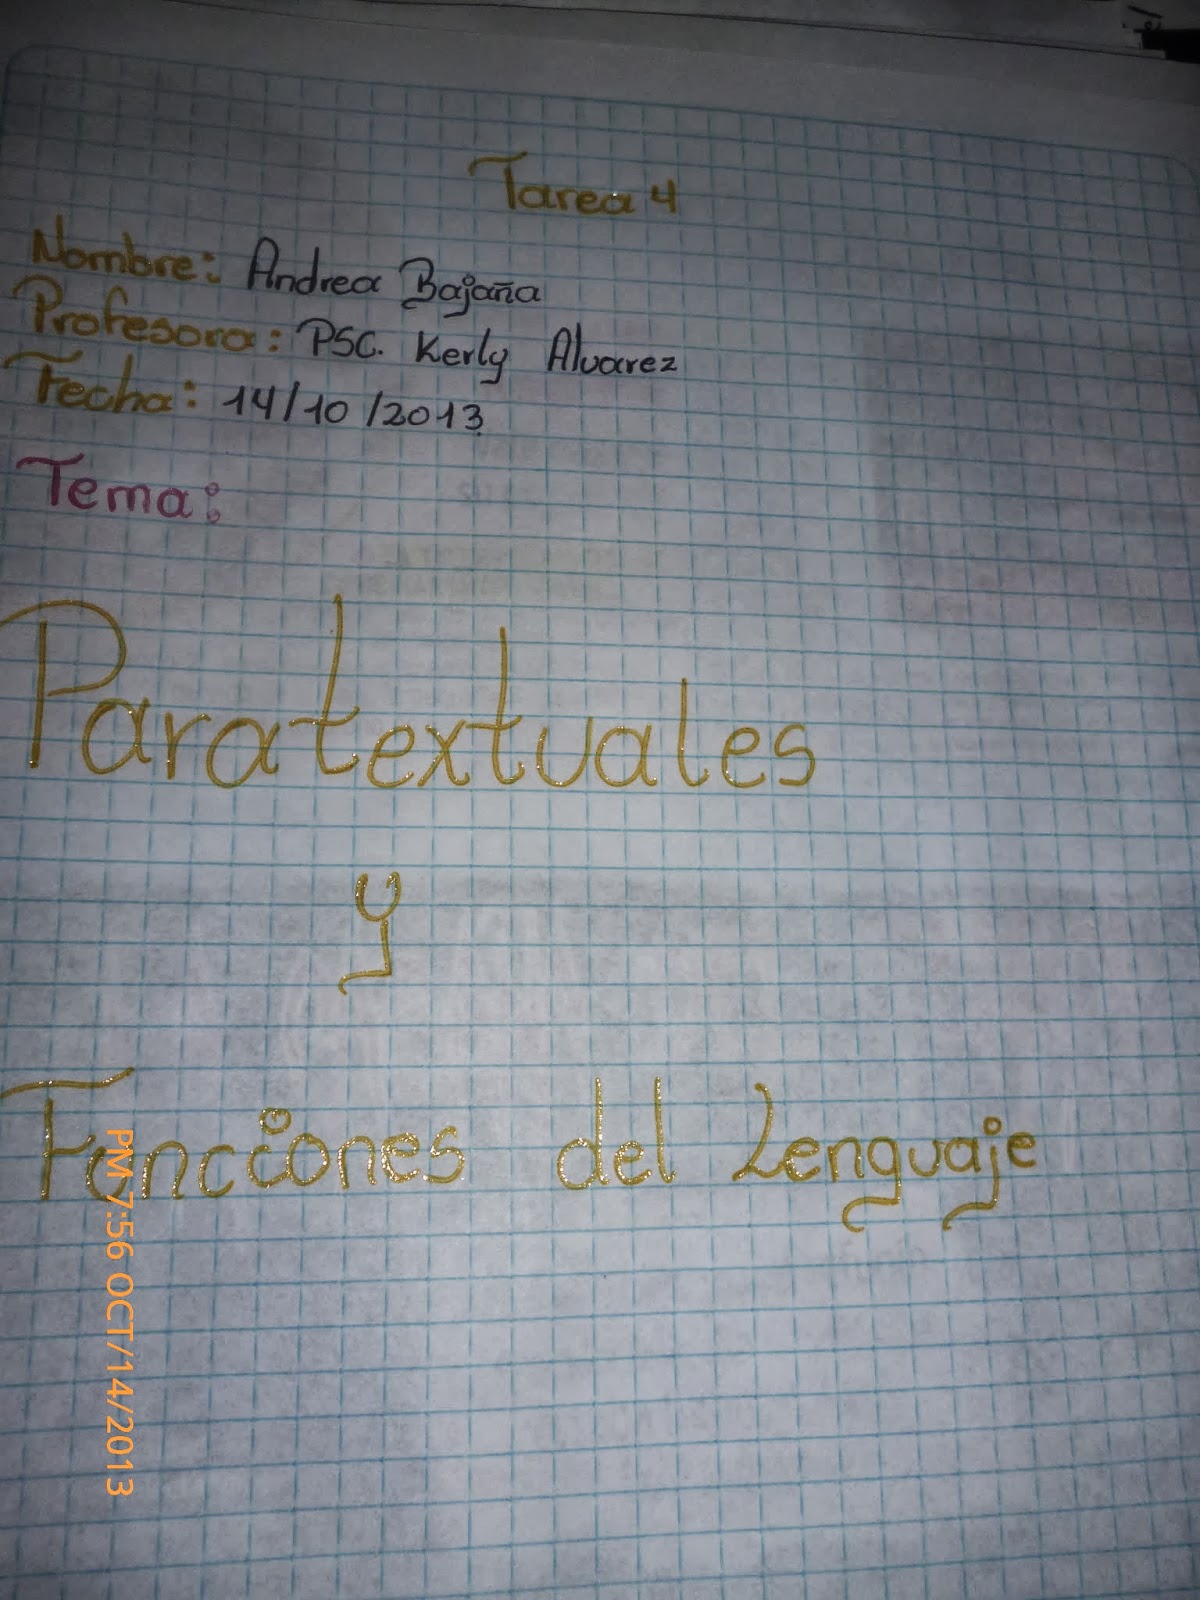 Tarea 4
Nombre: Andrea Bajaña
Profesora: PSC. Kerly Alvarez
Fecha: 14/10/2013
Tema:
Paratextuales
y
Funciones del Lenguaje
PM 7:56 OCT/14/2013